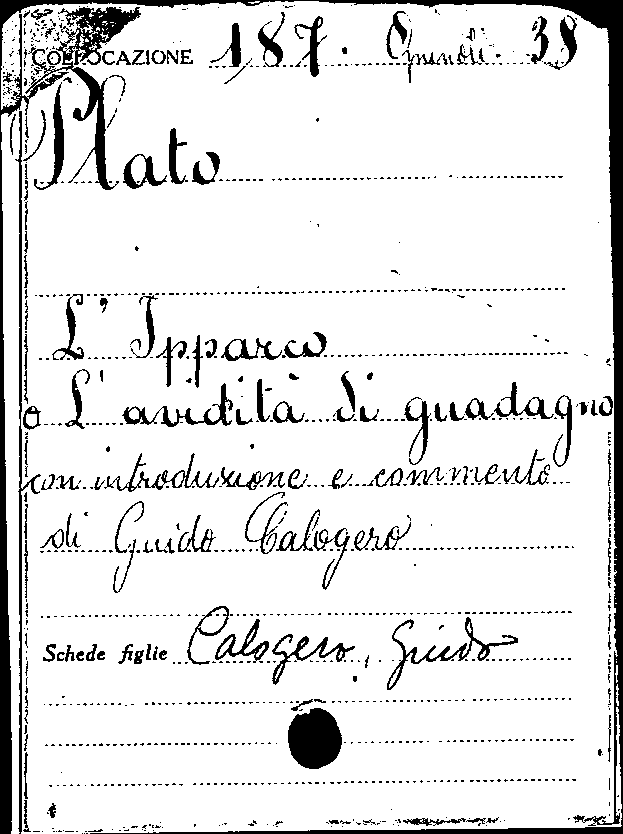 COLLOCAZIONE 187. Opuscoli. 38
Plato
L' Ipparco
o L' avidità di guadagno
con introduzione e commento
di Guido Calogero
Schede figlie Calogero, Guido